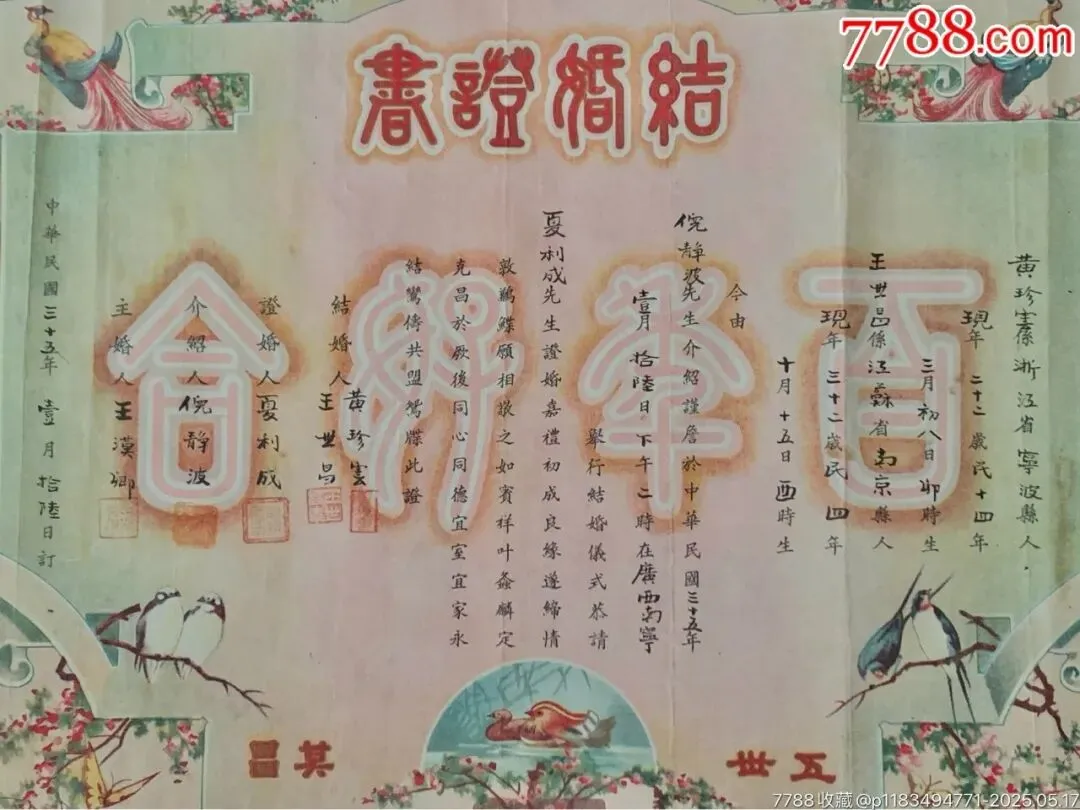 7788.com
結婚證書
百年好合
黃珍雲係浙江省寧波縣人
現年二十二歲民十四年
三月初八日卯時生
王世昌係江蘇省南京縣人
現年三十二歲民四年
十月十五日酉時生
今由
倪靜波先生介紹謹詹於中華民國三十五年
壹月拾陸日下午二時在廣西南寧
舉行結婚儀式恭請
夏利成先生證婚嘉禮初成良緣遂締情
敦鶼鰈願相敬之如賓祥叶螽麟定
克昌於厥後同心同德宜室宜家永
結鸞儔共盟鴛牒此證
結婚人 黃珍雲
王世昌
證婚人 夏利成
介紹人 倪靜波
主婚人 王漢卿
中華民國三十五年壹月拾陸日訂
五世其昌
7788收藏@p1183494771-2025.05.17